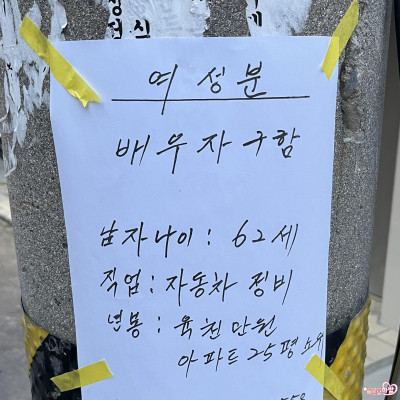 여성분
배우자구함
남자나이 : 62세
직업 : 자동차 정비
년봉 : 육천만원
아파트 25평 소유